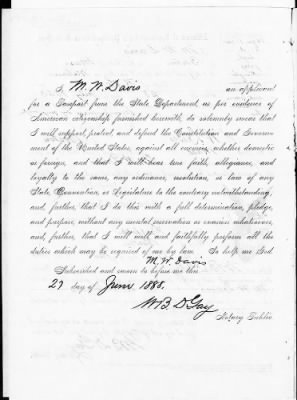 I, M. W. Davis an applicant
for a Passport from the State Department, as per evidence of
American citizenship furnished herewith, do solemnly swear that
I will support, protect and defend the Constitution and Govern-
ment of the United States, against all enemies, whether domestic
or foreign, and that I will bear true faith, allegiance, and
loyalty to the same, any ordinance, resolution, or law of any
State, Convention, or Legislature to the contrary notwithstanding;
and, further, that I do this with a full determination, pledge,
and purpose, without any mental reservation or evasion whatsoever,
and, further, that I will well and faithfully perform all the
duties which may be required of me by law. So help me God.
M. W. Davis
Subscribed and sworn to before me this
29 day of June 1888.
W B D Gay
Notary Public.